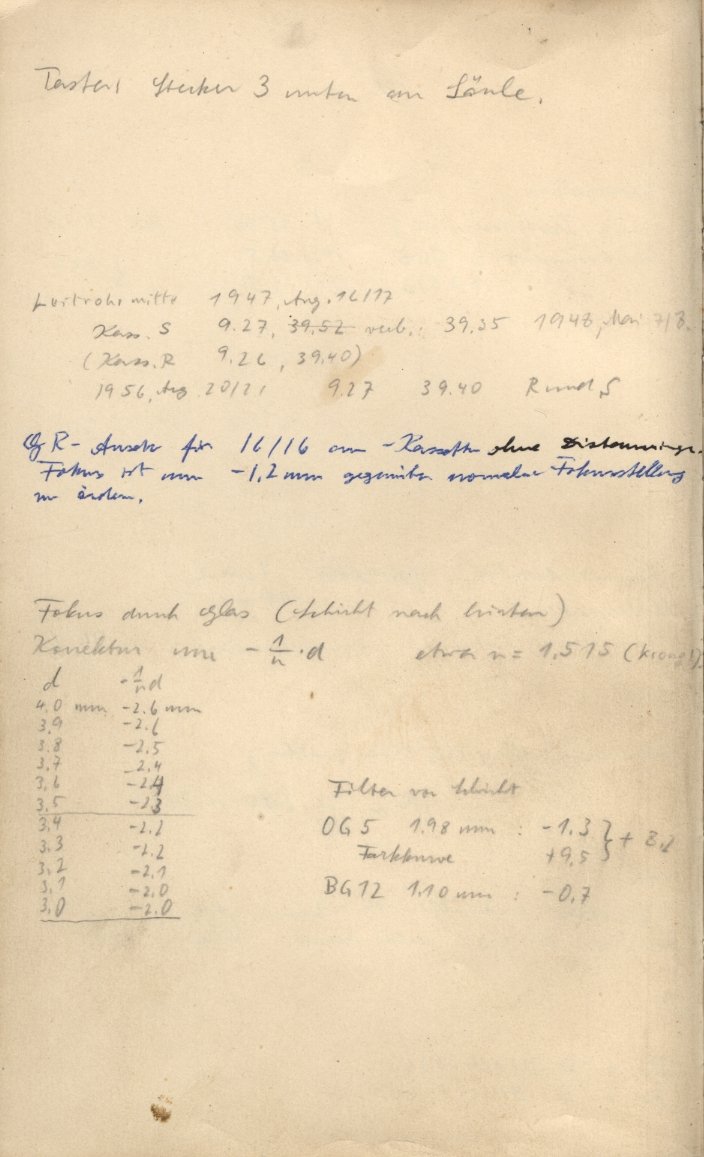 Taster: Stecker 3 unten an Säule.
Leitrohrmitte 1947, Aug. 16/17
Kass. S 9.27, 39,52 verb.: 39,35 1948, Mai 7/8.
(Kass. R 9.26, 39,40)
1956, Aug. 20/21 9.27 39.40 Rund, S
R-Ansatz für 16/16 cm-Kassette ohne
Fokus ist um -1,2 mm gegenüber normaler Fokusstellung
zu ändern.
Fokus durch Glas (Schicht nach hinten)
Korrektur um -1/n · d etwa n = 1,515
d -1/n d
4,0 mm -2.6 mm
3,9 -2.6
3,8 -2,5
3,7 -2,4
3,6 -2,4
3,5 -2,3
3,4 -2,2
3,3 -2,2
3,2 -2,1
3,1 -2,0
3,0 -2,0
Filter vor Schicht
OG5 1,98 mm : -1,3 } + 8,2
Farbkurve +9,5
BG12 1,10 mm : -0,7